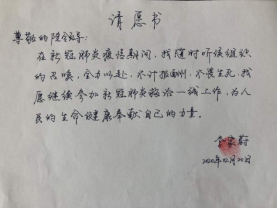 请愿书
尊敬的院领导：
在新冠肺炎疫情期间，我随时听候组织
的召唤，全力以赴，不计报酬，不畏生死，我
愿继续参加新冠肺炎救治一线工作，为人
民的生命健康奉献自己的力量。
2020年02月20日